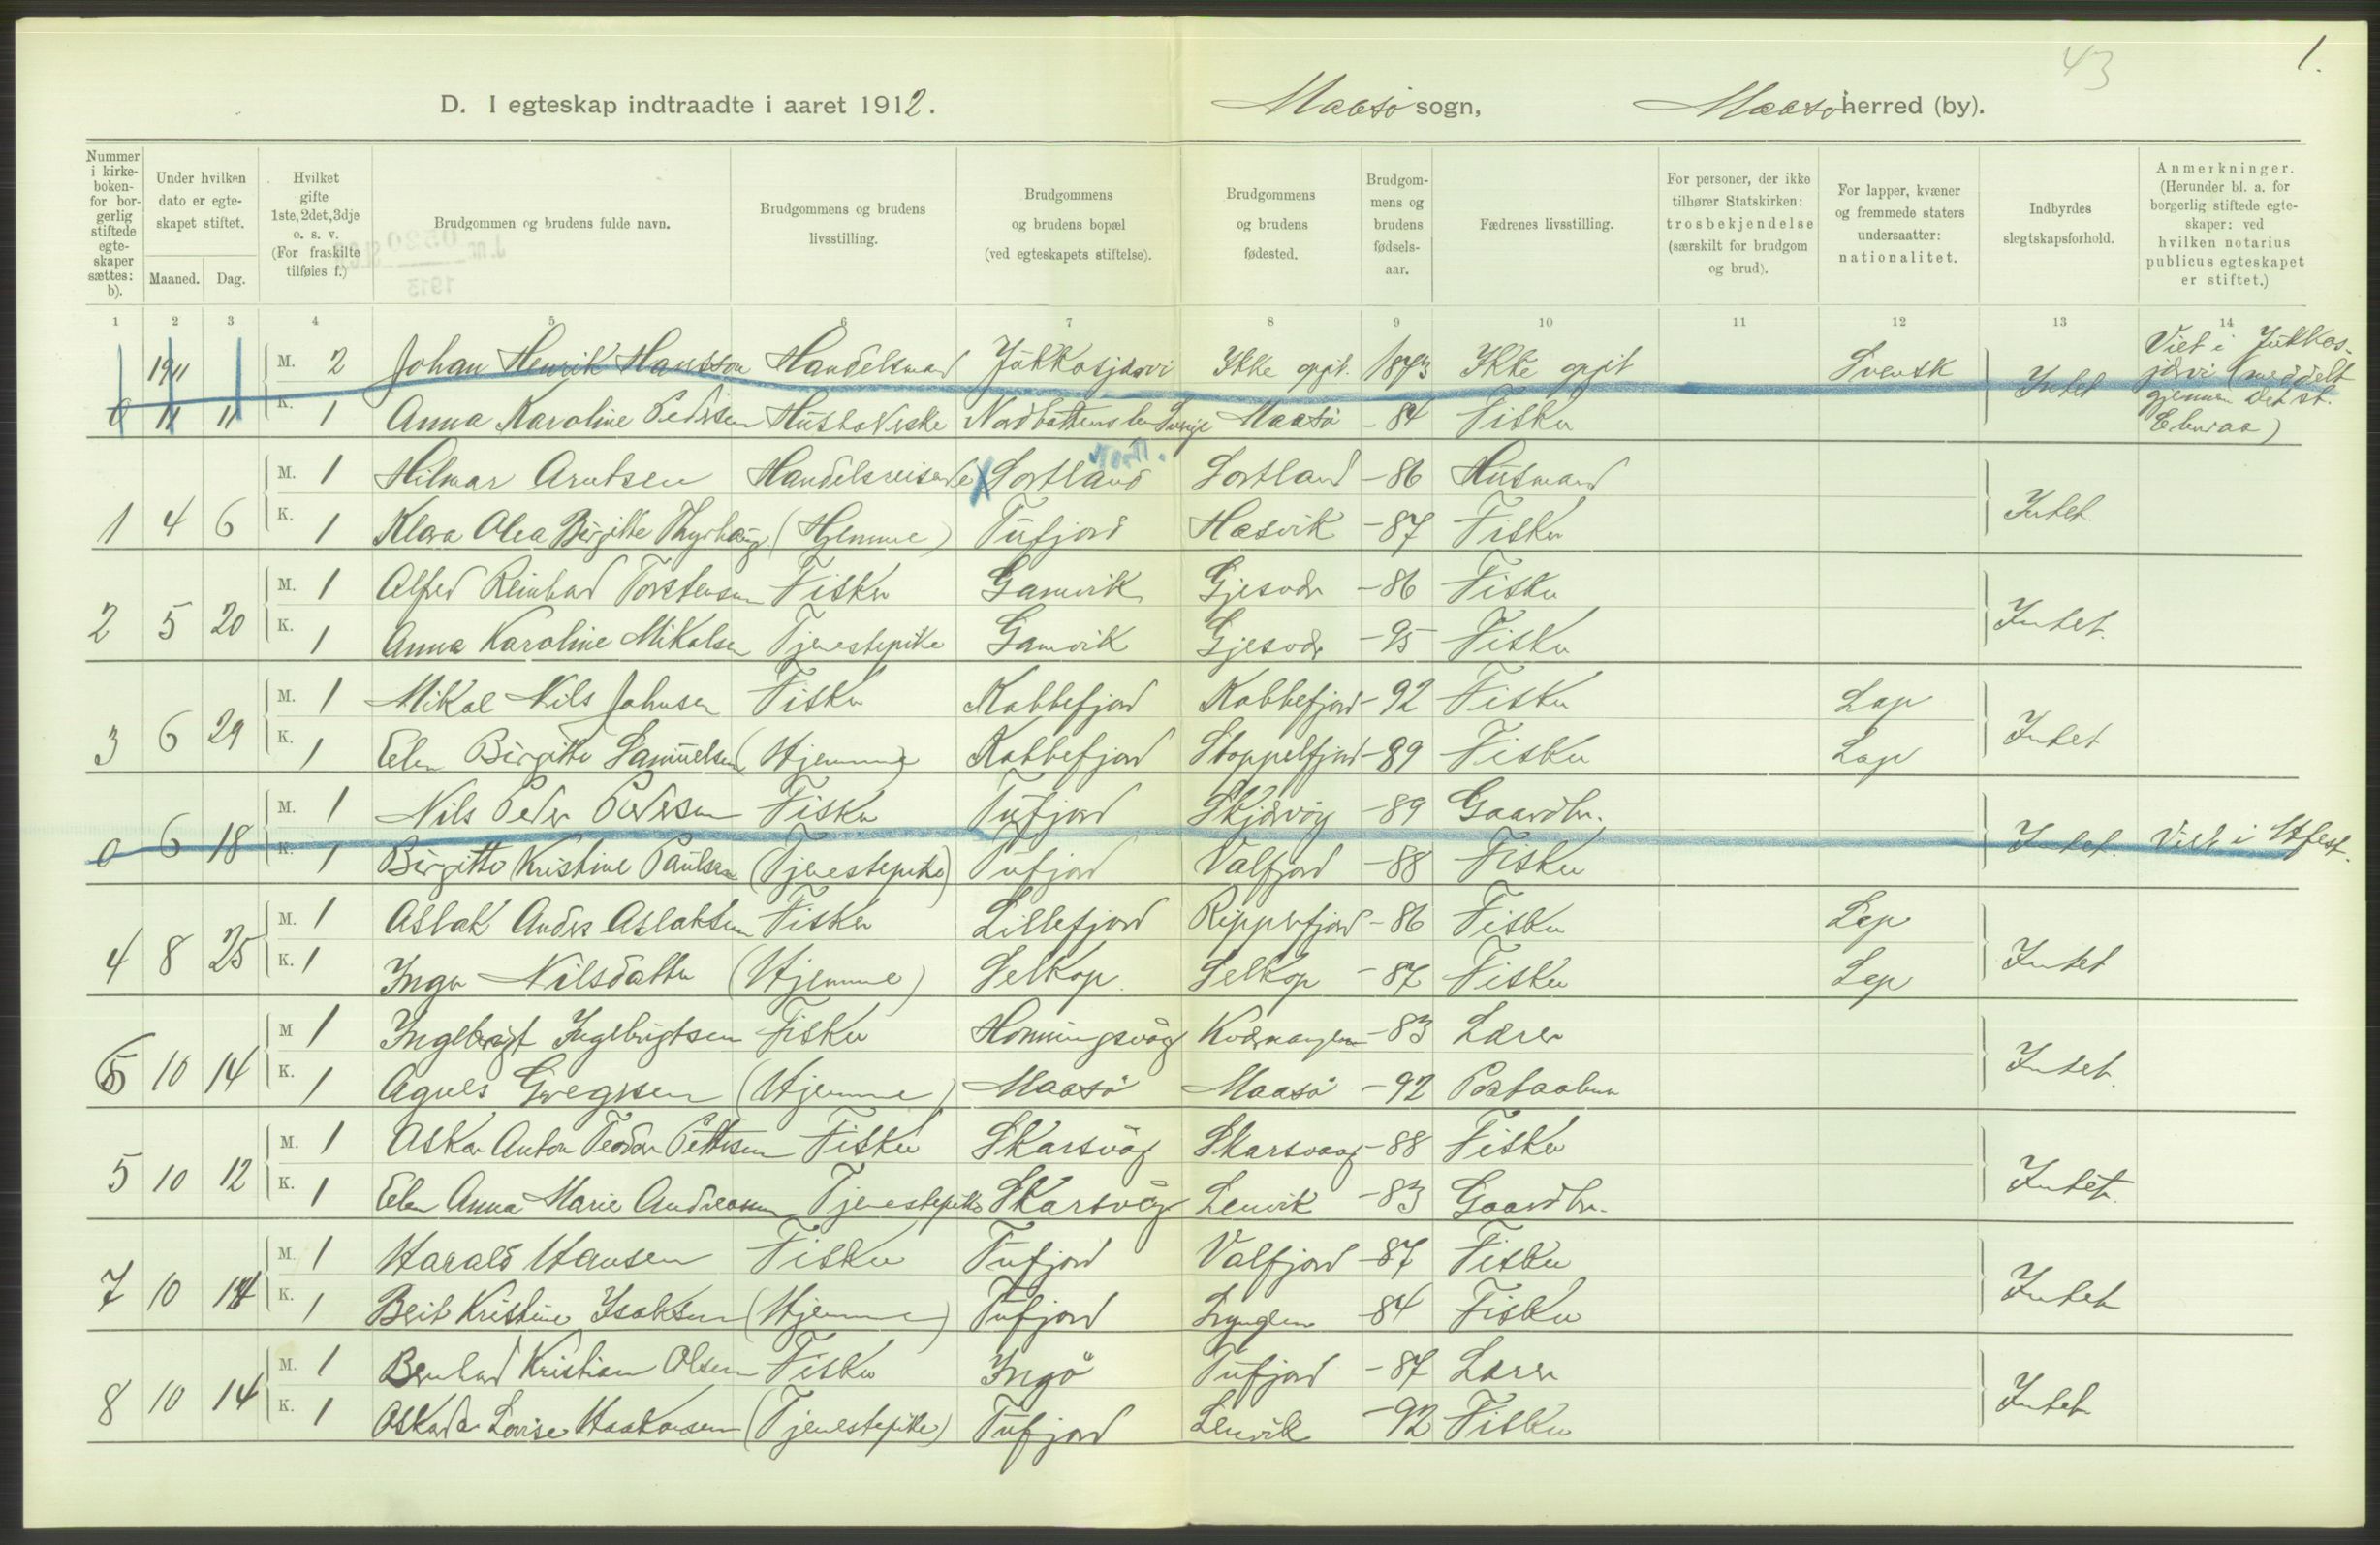 43
1.
D. I egteskap indtraadte i aaret 1912. Maasö sogn, Maasö herred (by).
Nummer i kirkeboken for borgerlig stiftede egteskaper sættes: b).
Under hvilken dato er egteskapet stiftet.
Maaned. Dag.
Hvilket gifte 1ste, 2det, 3dje o. s. v. (For fraskilte tilføies f.)
Brudgommen og brudens fulde navn.
Brudgommens og brudens livsstilling.
Brudgommens og brudens bopæl (ved egteskapets stiftelse).
Brudgommens og brudens fødested.
Brudgommens og brudens fødselsaar.
Fædrenes livsstilling.
For personer, der ikke tilhører Statskirken: trosbekjendelse (særskilt for brudgom og brud).
For lapper, kvæner og fremmede staters undersaatter: nationalitet.
Indbyrdes slegtskapsforhold.
Anmerkninger. (Herunder bl. a. for borgerlig stiftede egteskaper: ved hvilken notarius publicus egteskapet er stiftet.)
1 2 3 4 5 6 7 8 9 10 11 12 13 14
1911 M. 2 Johan Henrik Hansson Handelsmand Jukkasjärvi Ikke opgit. 1873 Ikke opgit Svensk Viet i Jukkas-
0 11 11 K. 1 Anna Karoline Pedersen Nordbottens len Sverige Maasö -84 Fisker Intet
M. 1 Hilmar Arntsen Handelsreisende Sortland Sortland -86 Husmand
1 4 6 K. 1 Klara Olea Birgitte (Hjemme) Tufjord Hasvik -87 Fisker Intet.
M. 1 Alfred Reinhard Torstensen Fisker Gamvik Gjesvær -86 Fisker
2 5 20 K. 1 Anna Karoline Mikalsen Tjenestepike Gamvik Gjesvær -95 Fisker Intet.
M. 1 Mikal Nils Johnsen Fisker Kobbefjord Kobbefjord -92 Fisker Lap
3 6 29 K. 1 Elen Birgitte Samuelsen (Hjemme) Kobbefjord Stoppelfjord -89 Fisker Lap Intet
M. 1 Nils Peder Pedersen Fisker Tufjord Skjærvöy -89 Gaardbr.
0 6 18 K. 1 Birgitte Kristine Paulsen (Tjenestepike) Tufjord Valfjord -88 Fisker Intet. Viet i Hfest.
M. 1 Aslak Anders Aslaksen Fisker Lillefjord Repperfjord -86 Fisker Lap
4 8 25 K. 1 Inger Nilsdatter (Hjemme) Selkop. Selkop -87 Fisker Lap Intet
M 1 Ingebrigt Ingebrigtsen Fisker Honningsvåg Kvænangen -83 Lærer
5 10 14 K. 1 Agnes Gregersen (Hjemme) Maasö Maasö -92 Postaabner Intet.
M. 1 Oskar Anton Teodor Pettersen Fisker Skarsvåg Skarsvaag -88 Fisker
5 10 12 K. 1 Elen Anna Marie Andreassen Tjenestepike Skarsvåg Lenvik -83 Gaardbr. Intet.
M. 1 Harald Hansen Fisker Tufjord Valfjord -87 Fisker
7 10 14 K. 1 Berit Kristine Isaksen (Hjemme) Tufjord Lyngen -84 Fisker Intet
M. 1 Bernhard Kristian Olsen Fisker Ingö Tufjord -87 Lærer
8 10 14 K. 1 Lovise Haakonsen (Tjenestepike) Tufjord Lenvik -92 Fisker Intet